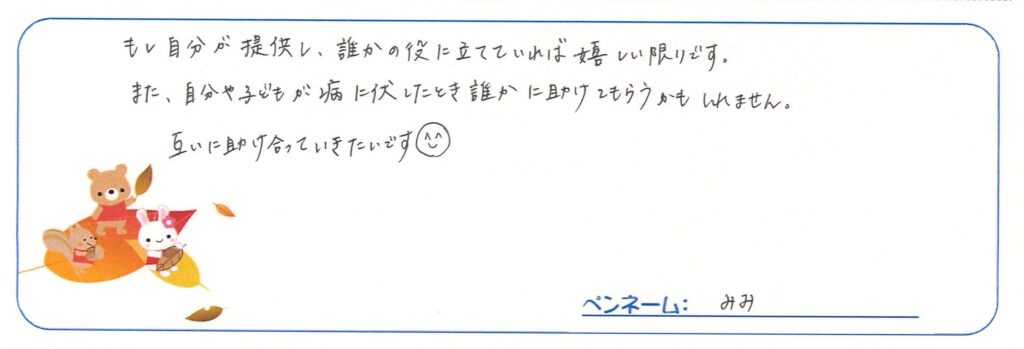 もし自分が提供し、誰かの役に立てていれば嬉しい限りです。
また、自分や子どもが病に伏したとき誰かに助けてもらうかもしれません。
互いに助け合っていきたいです
ペンネーム: みみ